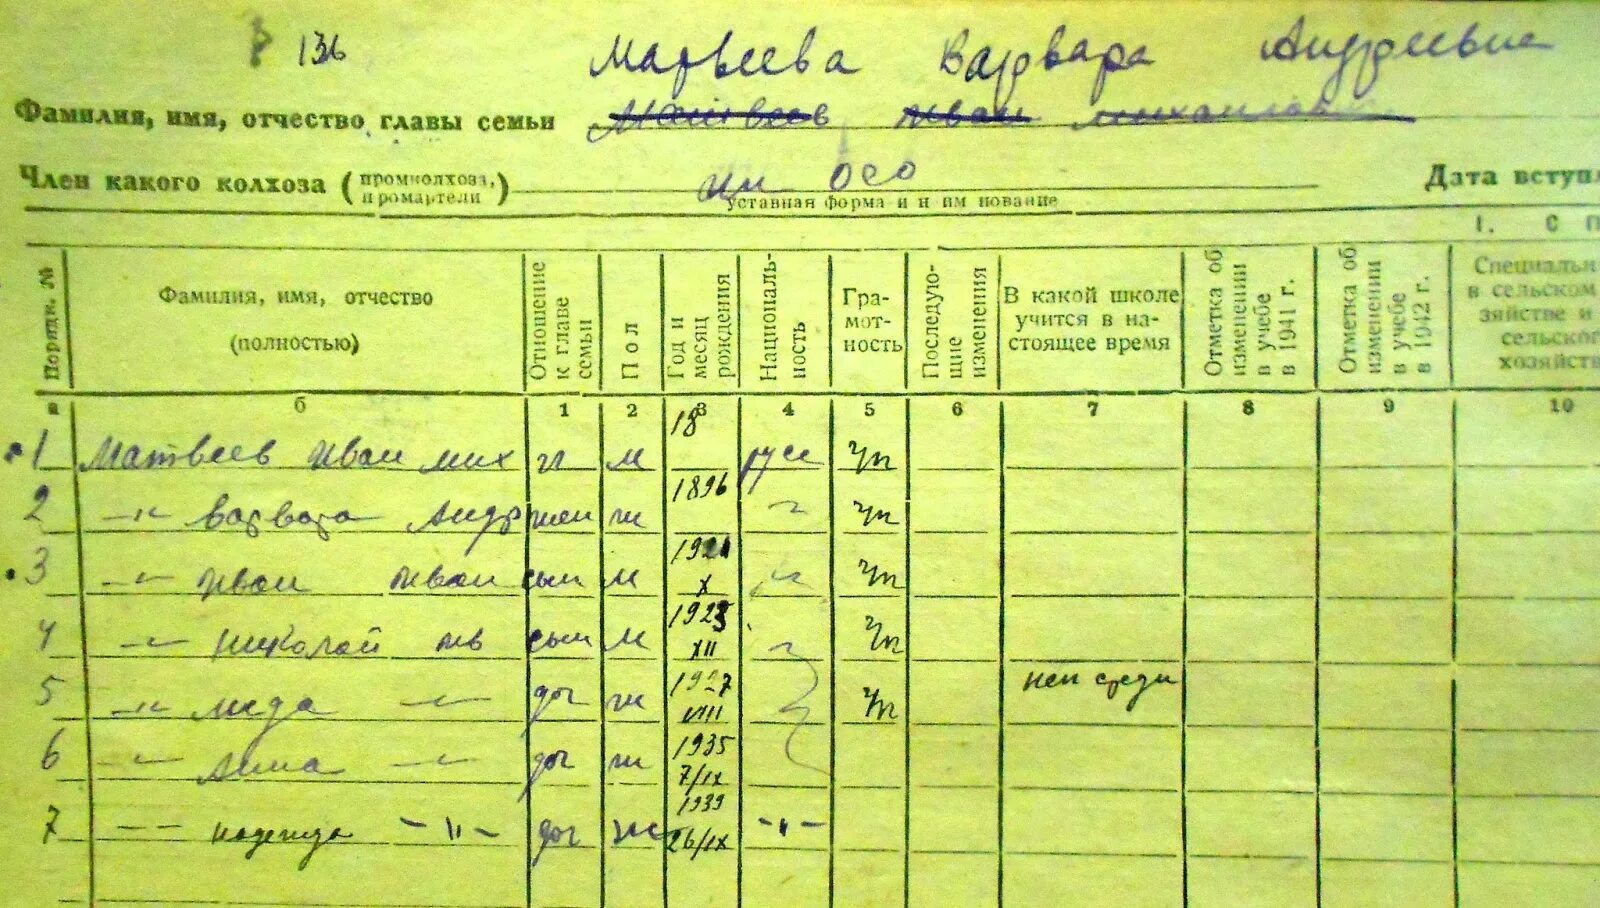 136 Матвеева Варвара Андреевна
Фамилия, имя, отчество главы семьи Матвеев Иван Михайлов
Член какого колхоза (промколхоза, промартели)
уставная форма и наименование
Дата вступл
I. СП
Порядк. № | Фамилия, имя, отчество (полностью) | Отношение к главе семьи | Пол | Год и месяц рождения | Национальность | Грамотность | Последующие изменения | В какой школе учится в настоящее время | Отметка об изменении в учебе в 1941 г. | Отметка об изменении в учебе в 1942 г. | Специальн в сельском зяйстве и сельског хозяйств
а б 1 2 3 4 5 6 7 8 9 10
1 Матвеев Иван Мих гл м 18 русс чп
2 -"- Варвара Андр жен ж 1896 " чп
3 -"- Иван Иван сын м X " чп
4 -"- Николай Ив сын м 1925 XII " чп
5 -"- Лида -"- доч ж 1927 VIII чп неп средн
6 -"- Анна -"- доч ж 1935 7/IX
7 -"- Надежда -"- доч ж 1939 26/IX -"-